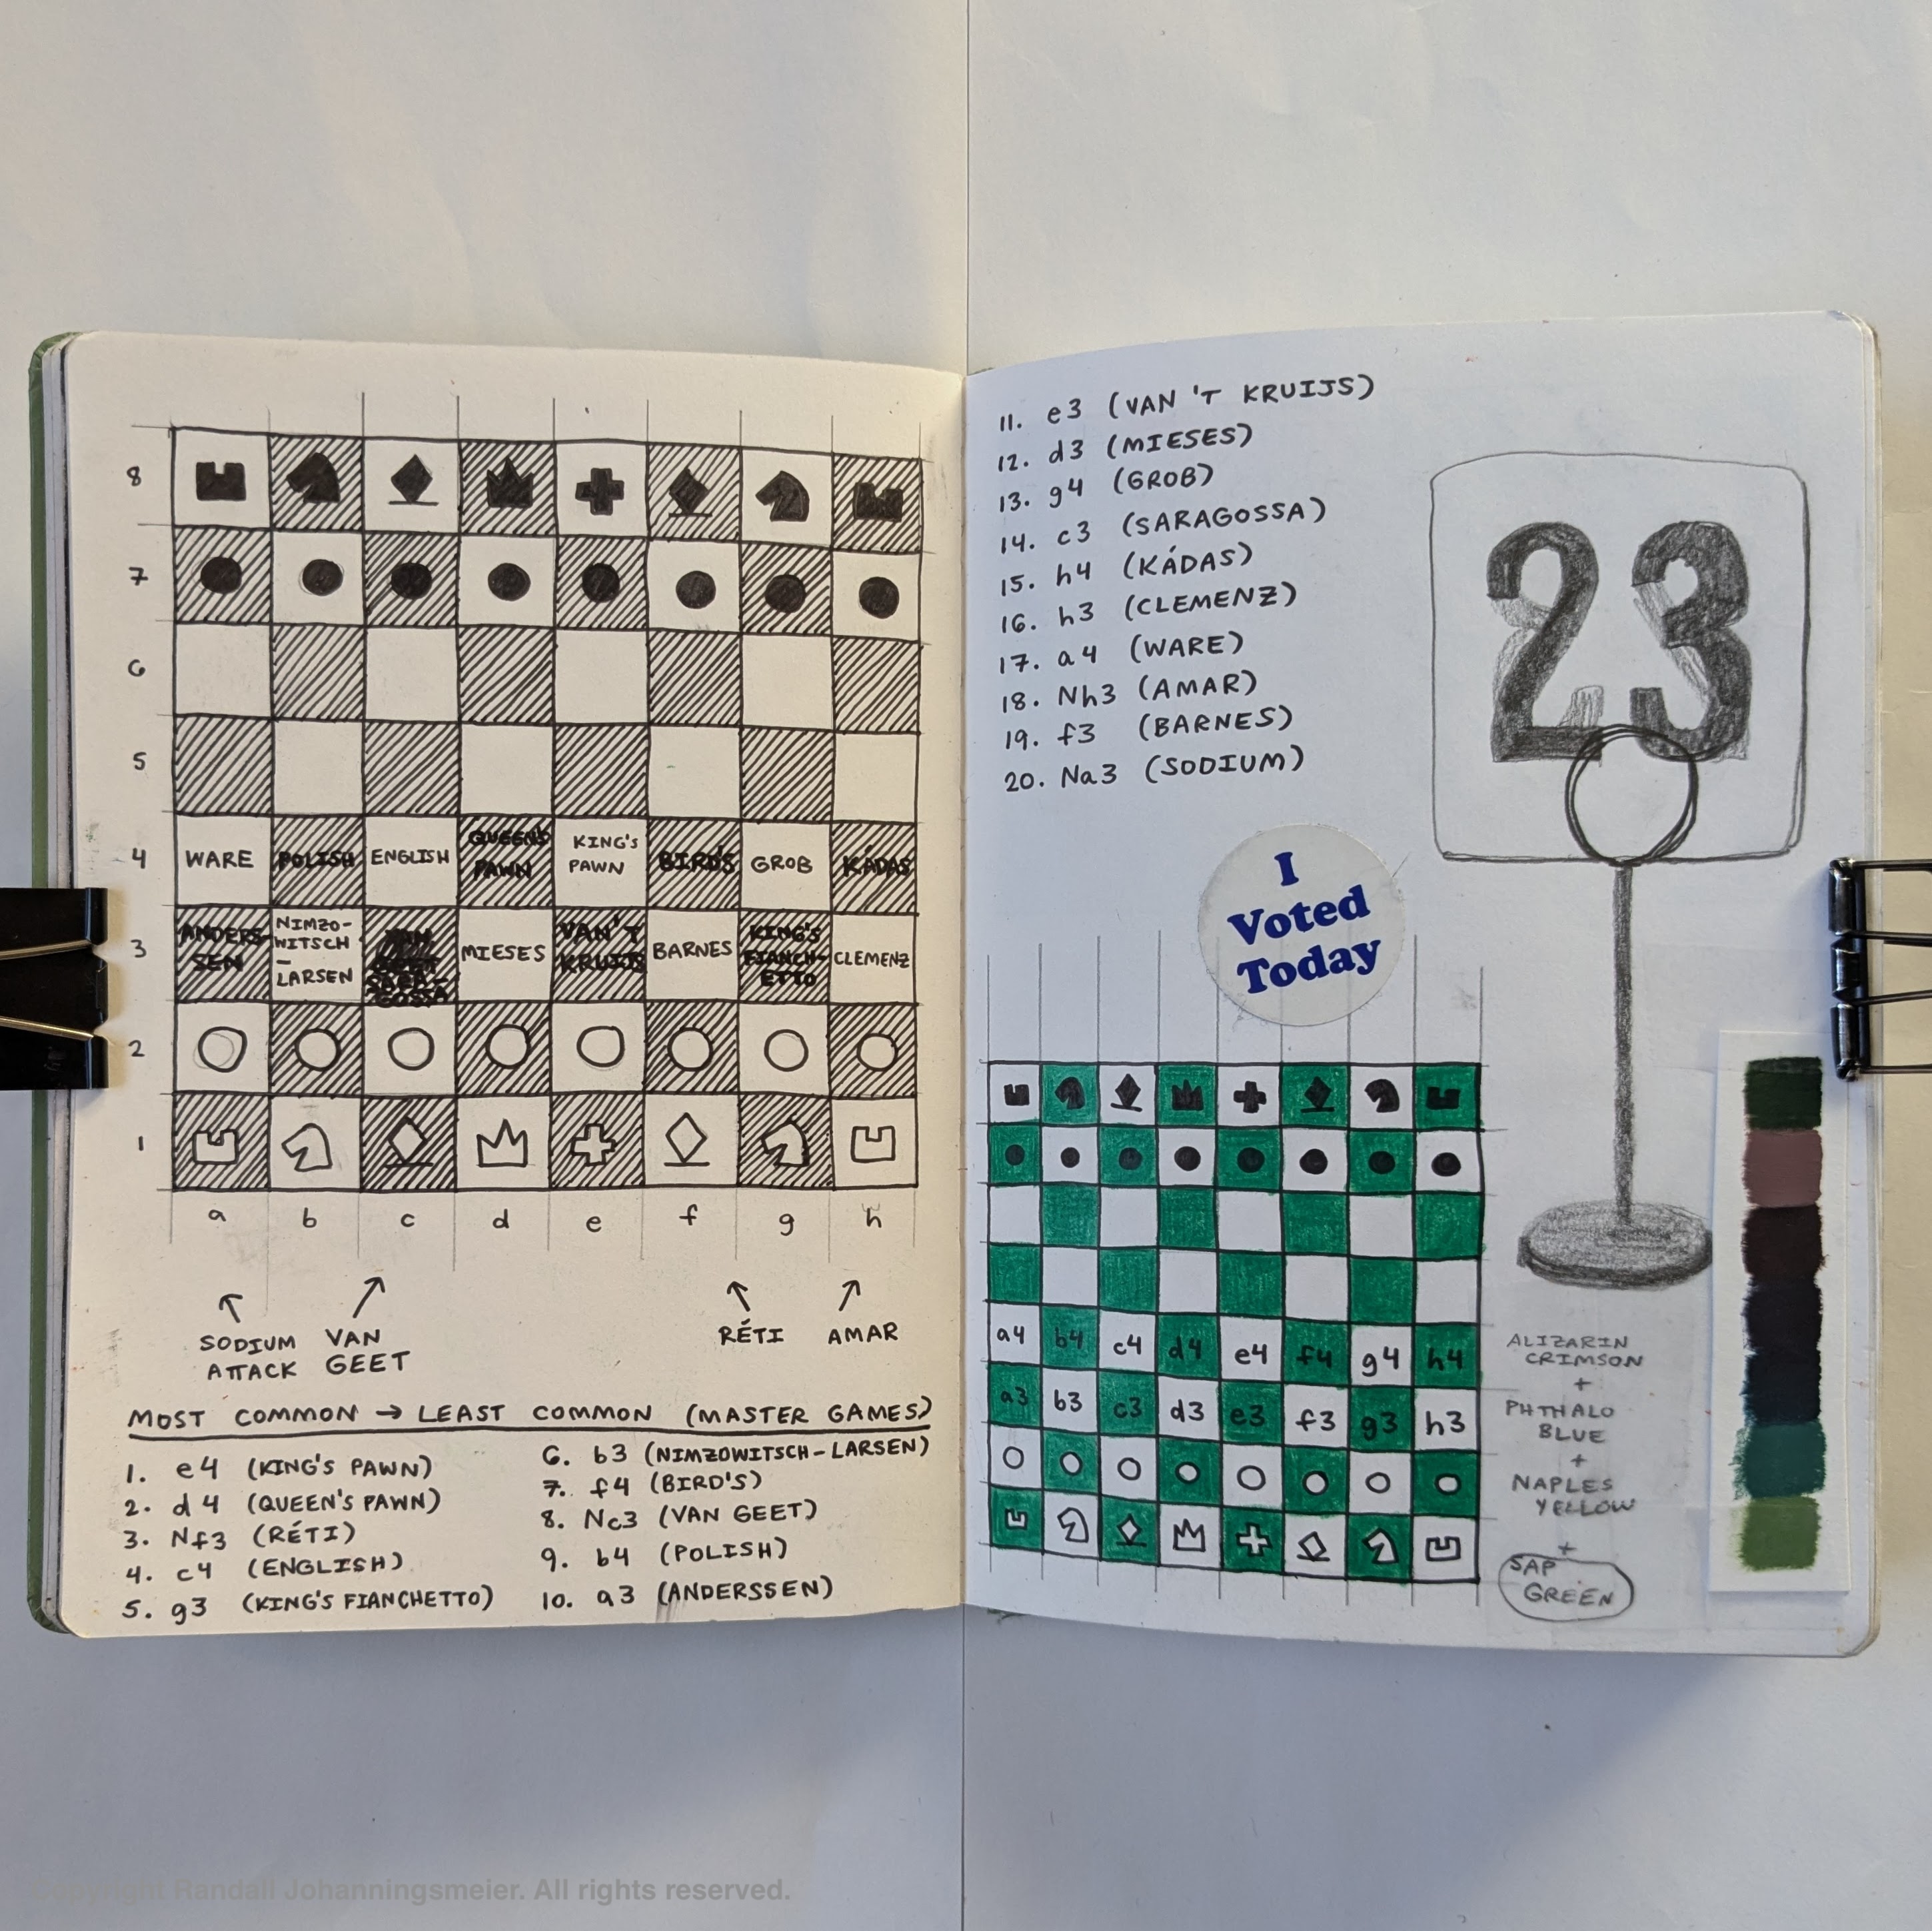 8
7
6
5
4
WARE
POLISH
ENGLISH
QUEEN'S
PAWN
KING'S
PAWN
BIRD'S
GROB
KÁDAS
3
ANDERS-
SEN
NIMZO-
WITSCH
–
LARSEN
VAN
GEET
SARA-
GOSSA
MIESES
VAN 'T
KRUIJS
BARNES
KING'S
FIANCH-
ETTO
CLEMENZ
2
1
a b c d e f g h
SODIUM
ATTACK
VAN
GEET
RÉTI
AMAR
MOST COMMON → LEAST COMMON (MASTER GAMES)
1. e4 (KING'S PAWN)
2. d4 (QUEEN'S PAWN)
3. Nf3 (RÉTI)
4. c4 (ENGLISH)
5. g3 (KING'S FIANCHETTO)
6. b3 (NIMZOWITSCH-LARSEN)
7. f4 (BIRD'S)
8. Nc3 (VAN GEET)
9. b4 (POLISH)
10. a3 (ANDERSSEN)
11. e3 (VAN 'T KRUIJS)
12. d3 (MIESES)
13. g4 (GROB)
14. c3 (SARAGOSSA)
15. h4 (KÁDAS)
16. h3 (CLEMENZ)
17. a4 (WARE)
18. Nh3 (AMAR)
19. f3 (BARNES)
20. Na3 (SODIUM)
23
I
Voted
Today
a4 b4 c4 d4 e4 f4 g4 h4
a3 b3 c3 d3 e3 f3 g3 h3
ALIZARIN
CRIMSON
+
PHTHALO
BLUE
+
NAPLES
YELLOW
+
SAP
GREEN
Copyright Randall Johanningsmeier. All rights reserved.